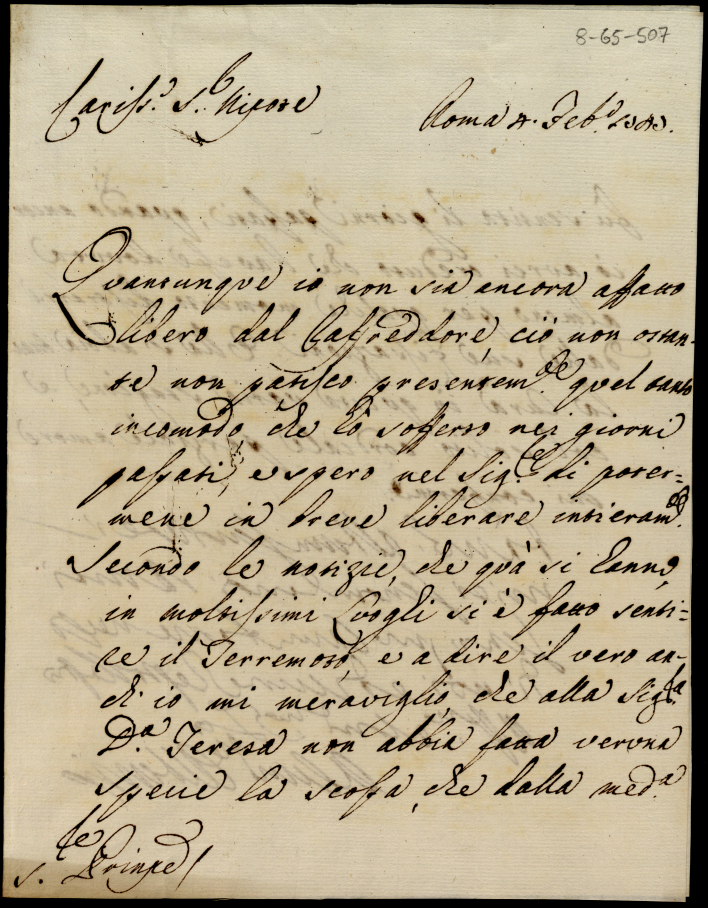 8-65-507
Cariss.o S.r Nipote
Roma 4. Feb.o
Quantunque io non sia ancora affatto
libero dal Cafreddore, ciò non ostan-
te non patisco presentem.te quel tanto
incomodo che hò sofferto nei giorni
passati, e spero nel Sig.re di poter-
mene in breve liberare intieram.te
Secondo le notizie, che quà si hanno,
in moltissimi Luoghi si è fatto senti-
re il Terremoto, e a dire il vero an-
ch'io mi meraviglio, che alla Sig.ra
D.a Teresa non abbia fatta veruna
specie la scossa, che dalla med.a
S. Prinpe